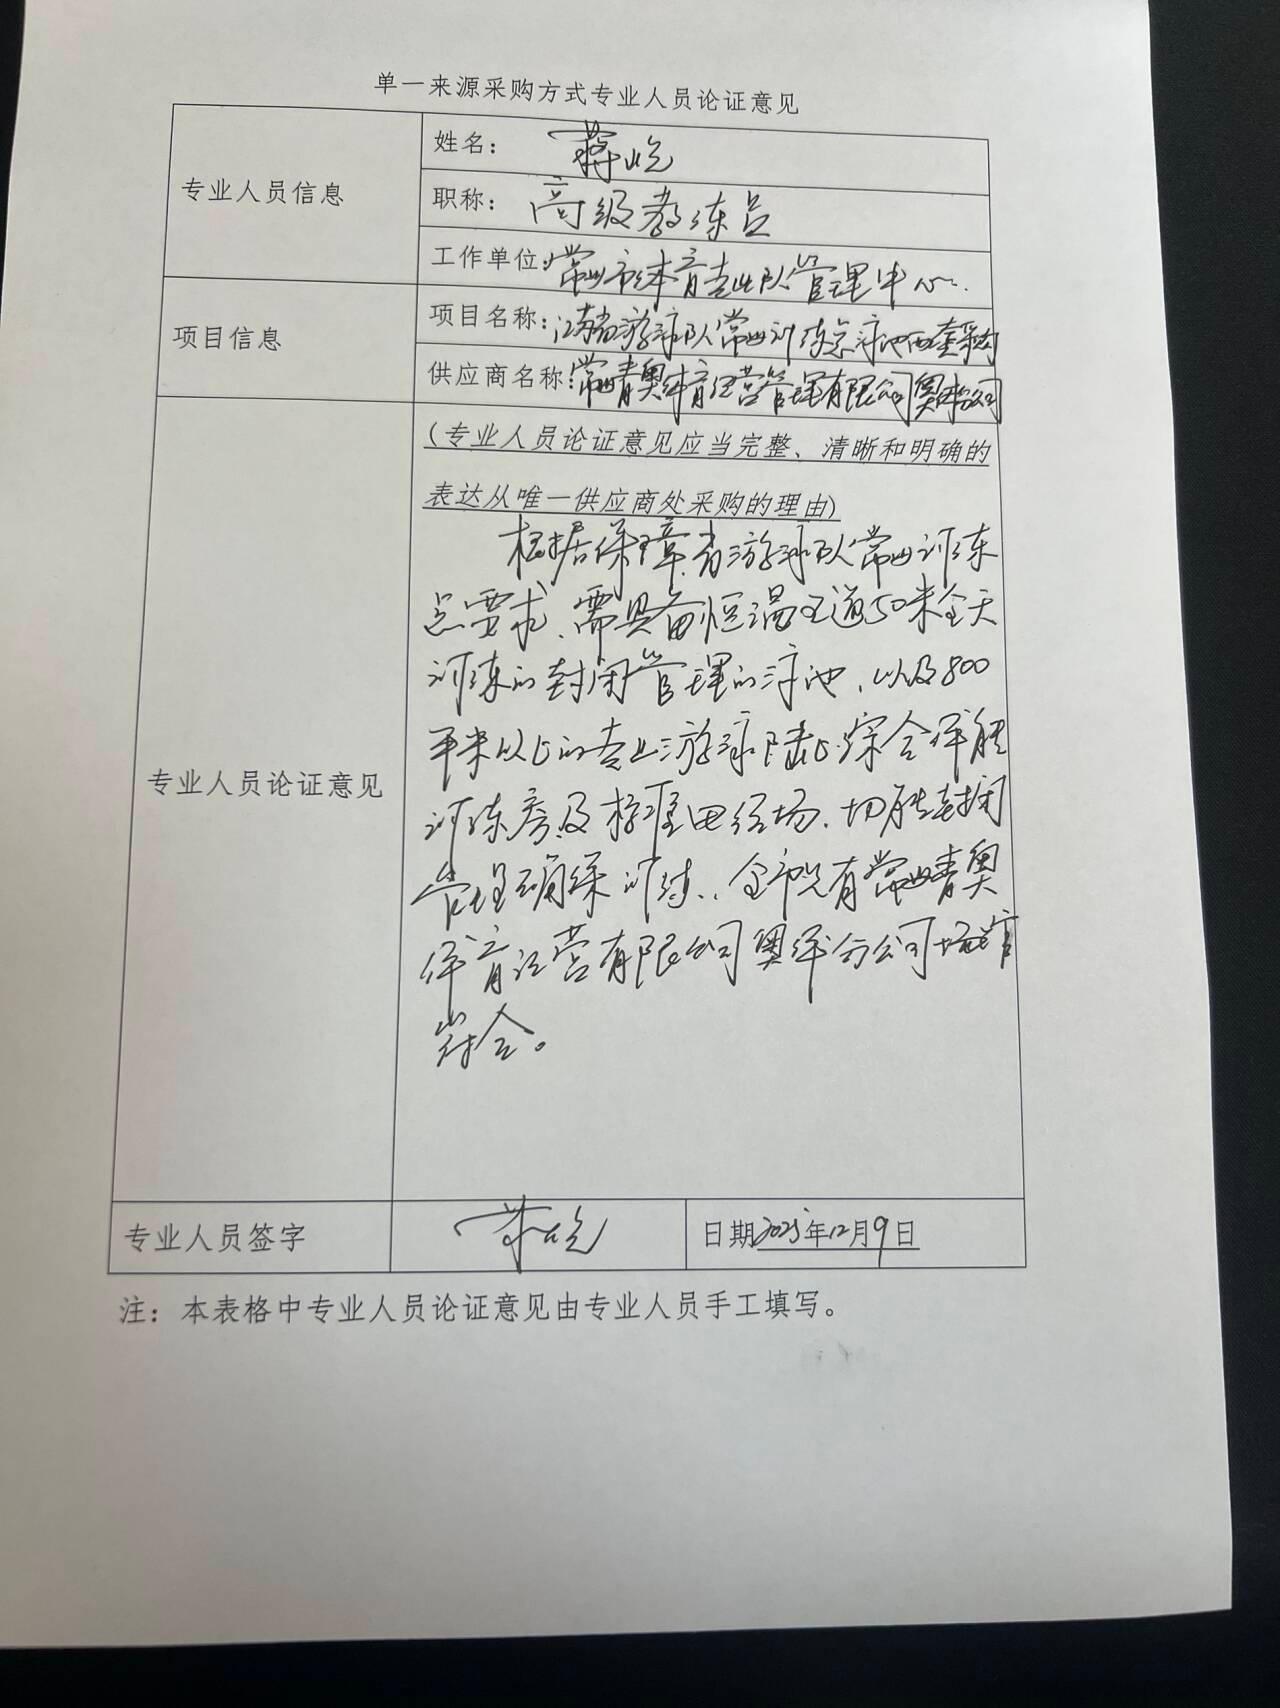 单一来源采购方式专业人员论证意见
专业人员信息
姓名：蒋屹
职称：高级教练员
工作单位：常州市体育专业队管理中心
项目信息
项目名称：江苏省游泳队常州训练点泳池配套采购
供应商名称：常州青奥体育经营管理有限公司奥体分公司
专业人员论证意见
（专业人员论证意见应当完整、清晰和明确的
表达从唯一供应商处采购的理由）
根据保障省游泳队常州训练
点要求、需具备恒温 道50米全天
训练的封闭管理的泳池、以及800
平米以上的专业游泳陆上综合体能
训练房及标准田径场、切 封闭
管理确保训练、全市只有常州青奥
体育经营有限公司奥体分公司场馆
符合。
专业人员签字
蒋屹
日期2025年12月9日
注：本表格中专业人员论证意见由专业人员手工填写。